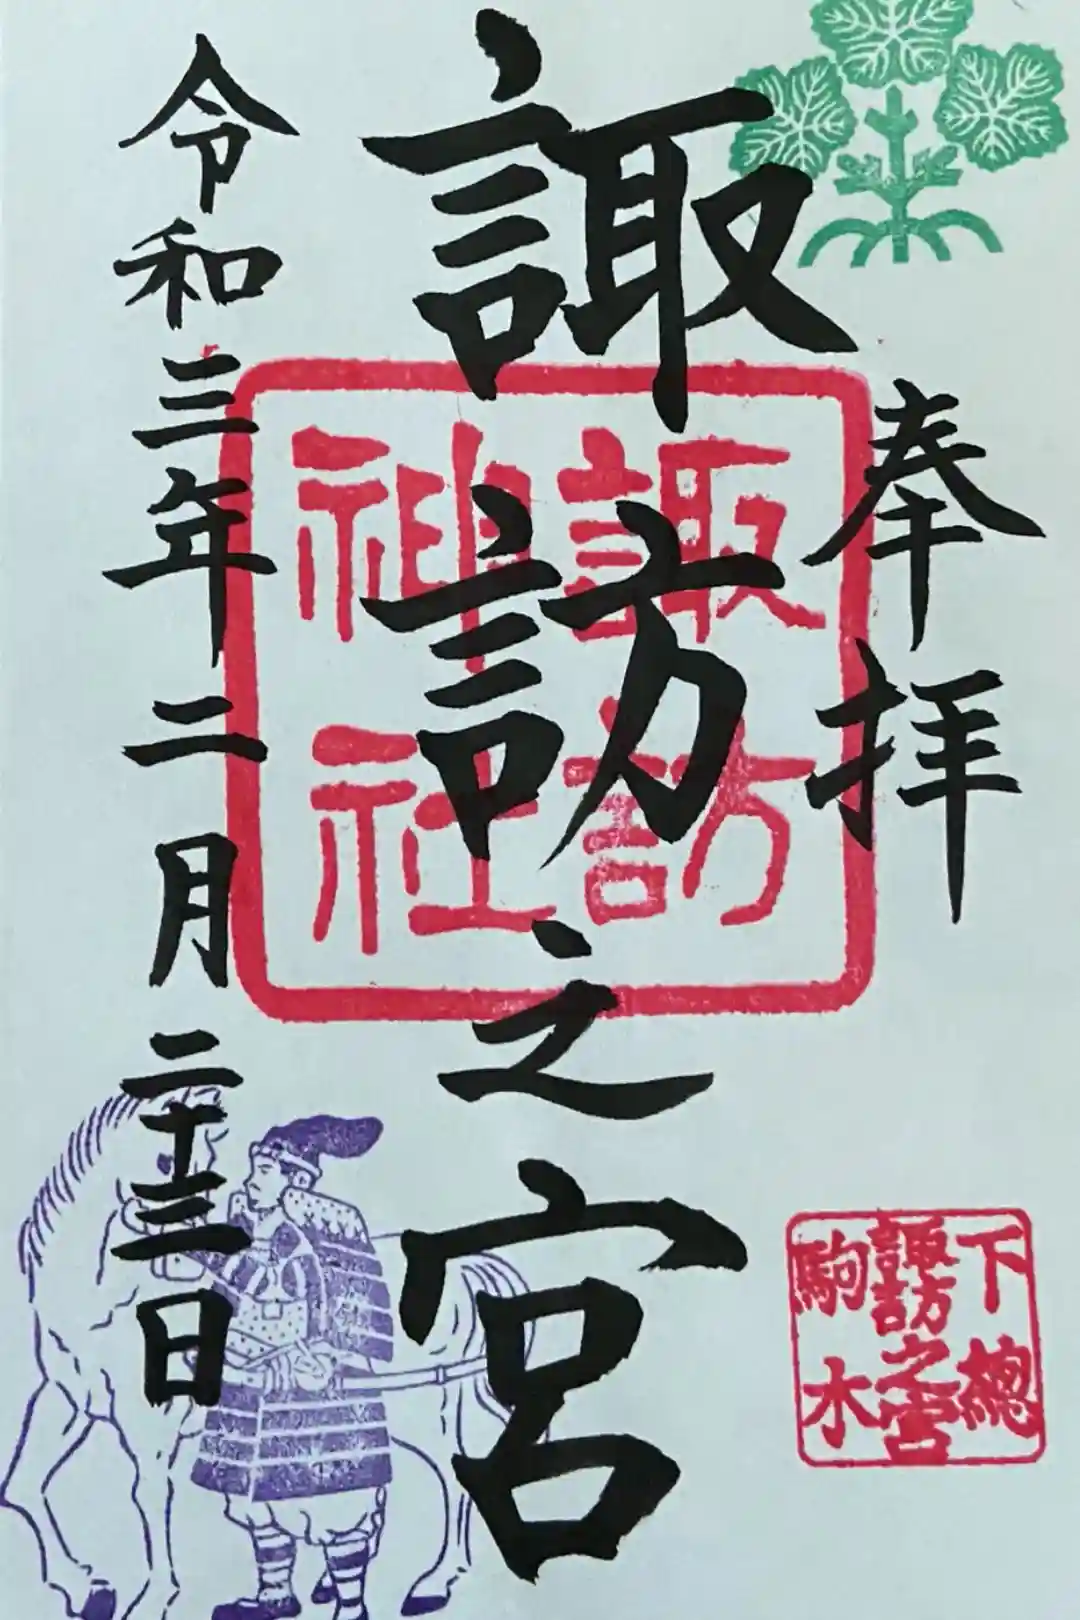 奉拝
諏訪之宮
令和三年二月二十三日
諏訪
神社
下總
諏訪之宮
駒木